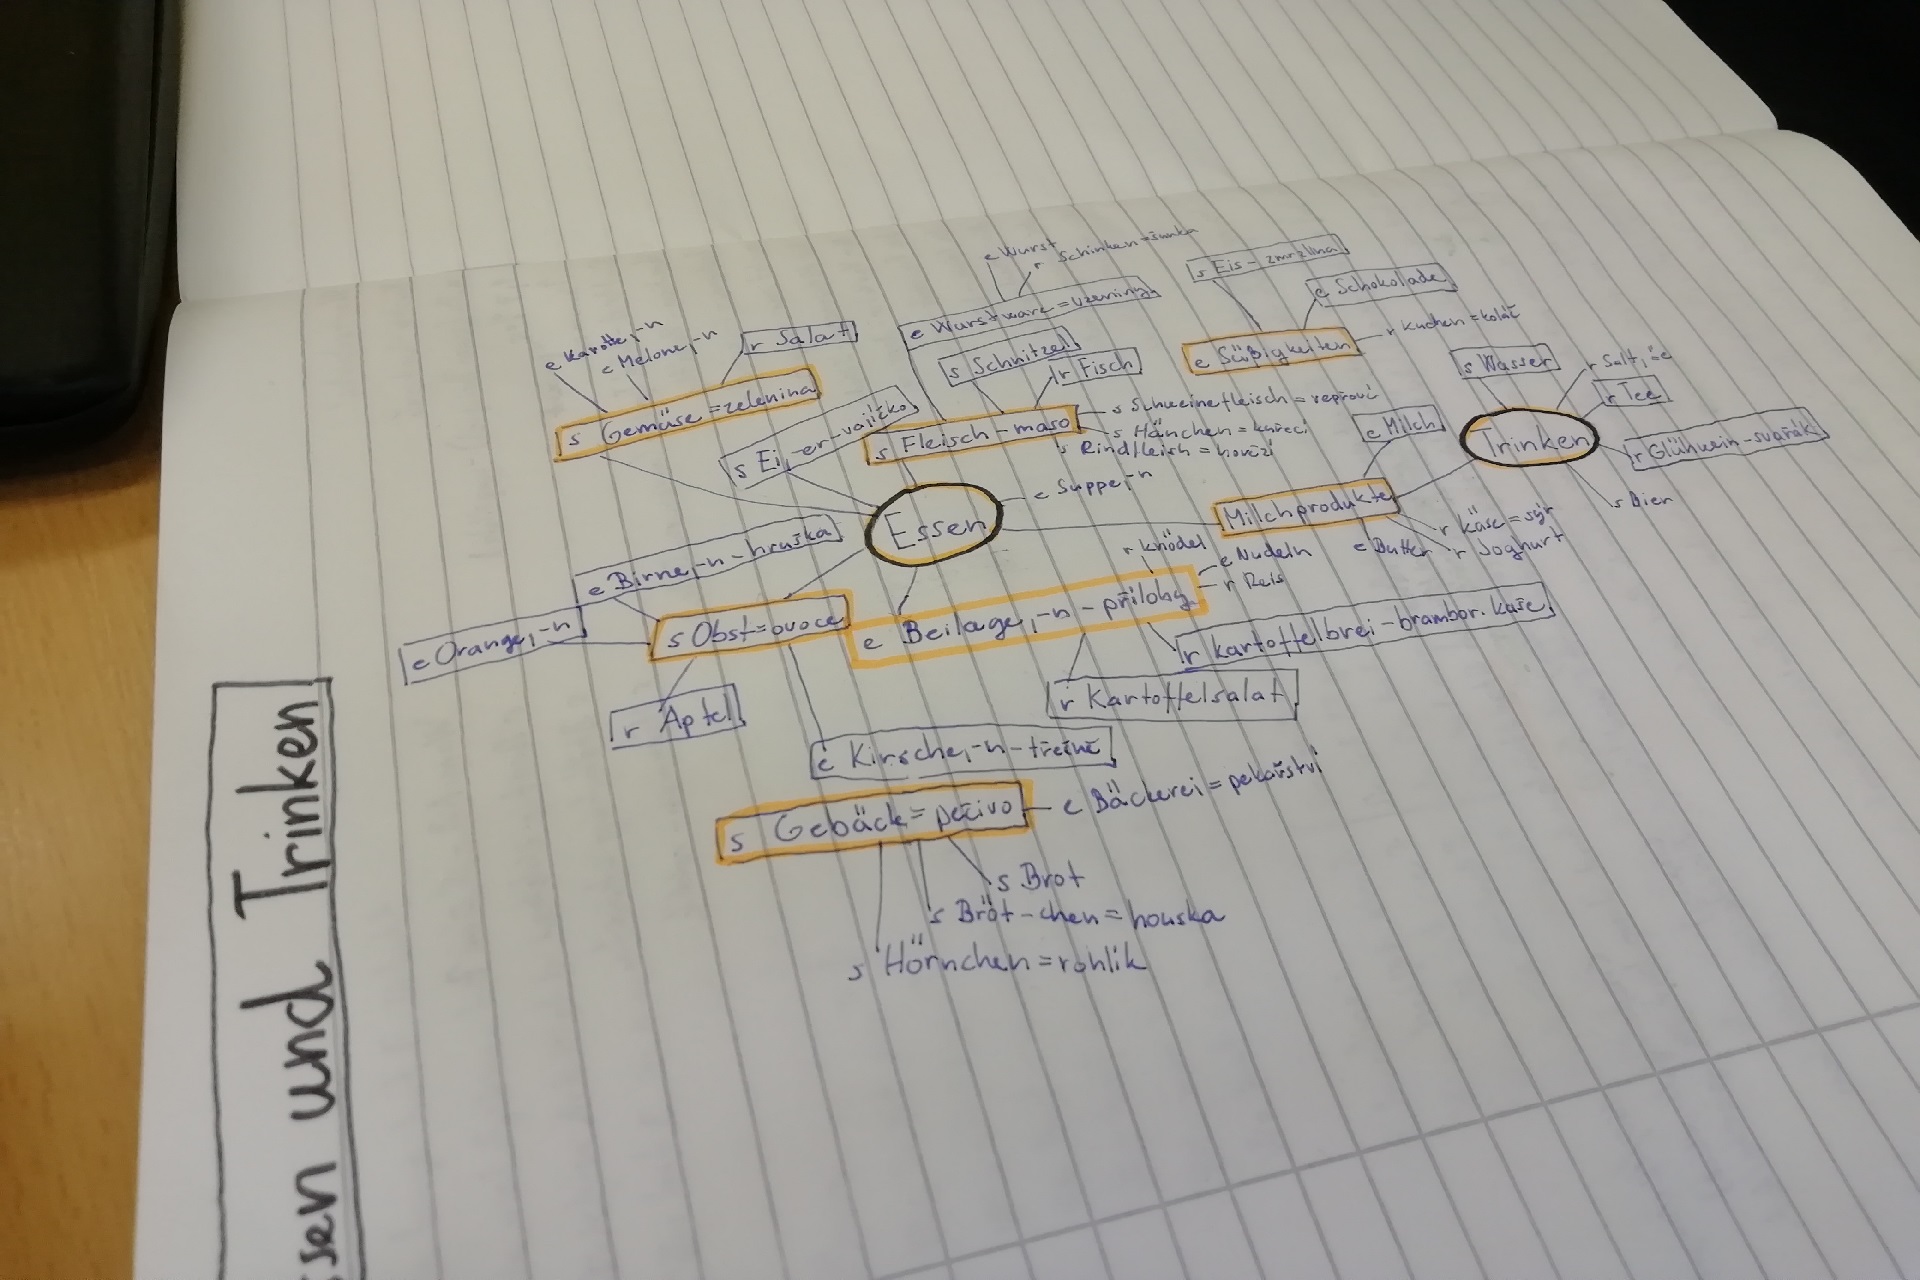 ssen und Trinken
e Wurst
r Schinken = šunka
e Wurstware = uzeniny
s Schnitzel
r Fisch
s Fleisch - maso
s Schweinefleisch = vepřové
s Hänchen = kuřecí
s Rindfleish = hovězí
e Karotte, -n
e Melone, -n
r Salat
s Gemüse = zelenina
s Ei, -er - vajíčko
Essen
e Suppe, -n
s Eis - zmrzlina
e Schokolade
e Süßigkeiten
r Kuchen = koláč
s Wasser
r Saft, ä e
r Tee
Trinken
r Glühwein - svařák
s Bier
e Milch
Milchprodukte
r Käse = sýr
r Joghurt
e Butter
e Birne, -n - hruška
e Orange, -n
s Obst = ovoce
r Apfel
e Kirsche, -n - třešně
r Knödel
e Nudeln
r Reis
e Beilage, -n - přílohy
r Kartoffelbrei - brambor. kaše
r Kartoffelsalat
s Gebäck = pečivo
e Bäckerei = pekařství
s Brot
s Bröt-chen = houska
s Hörnchen = rohlík